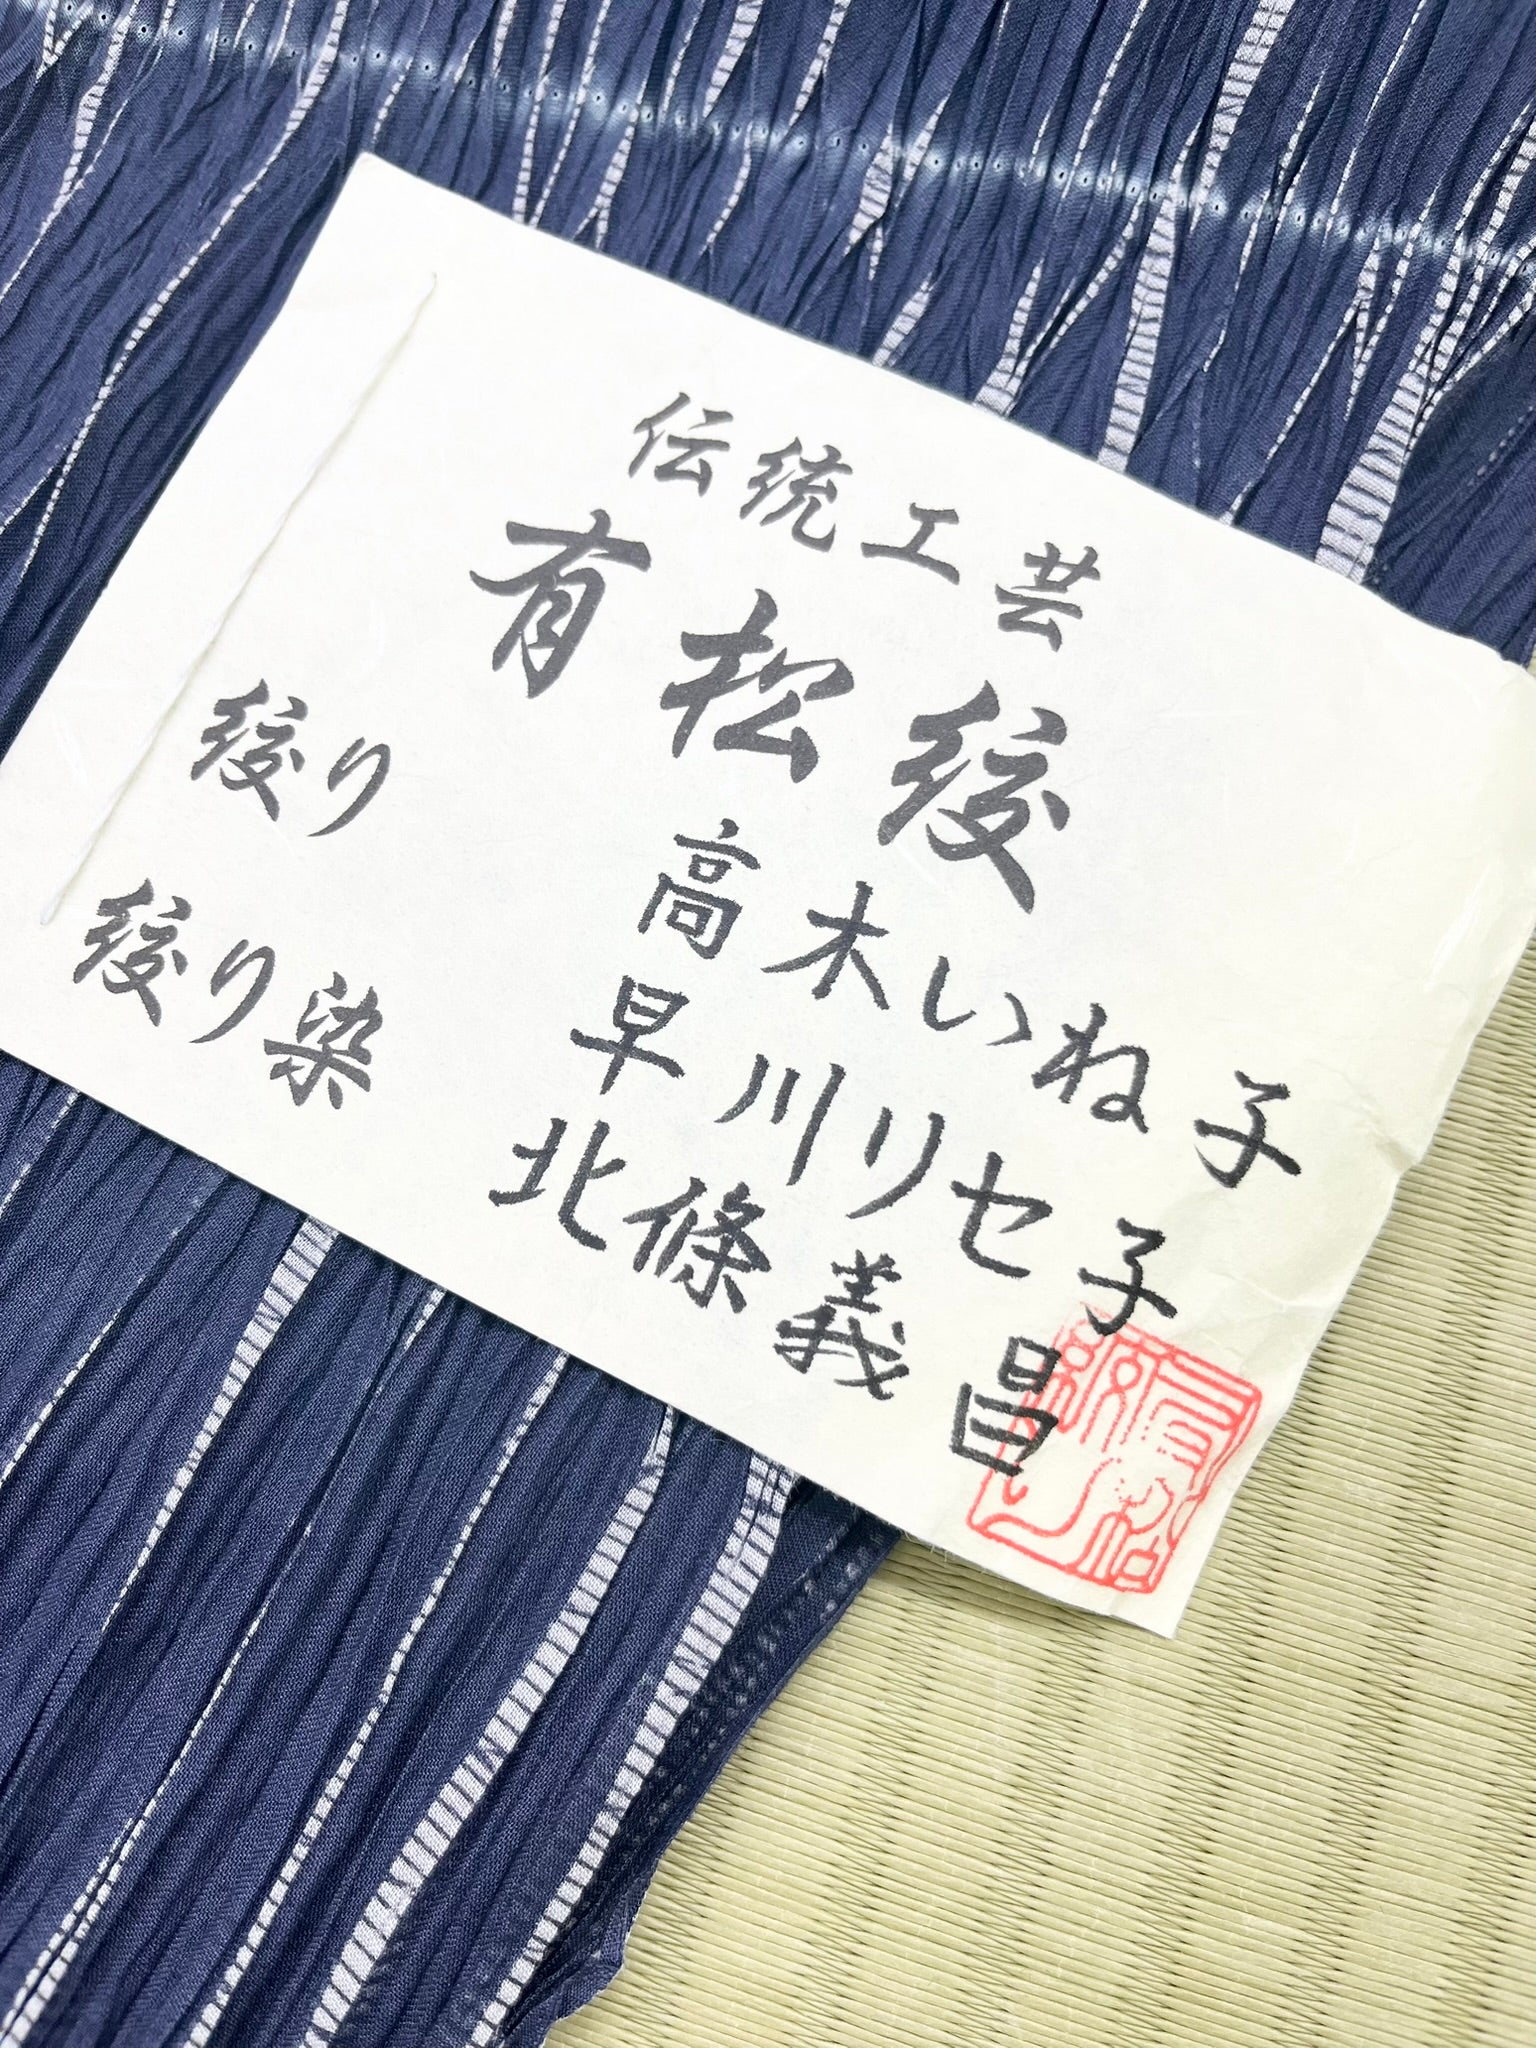 伝統工芸
有松絞
絞り 高木いね子
早川リセ子
絞り染 北條義昌
有松